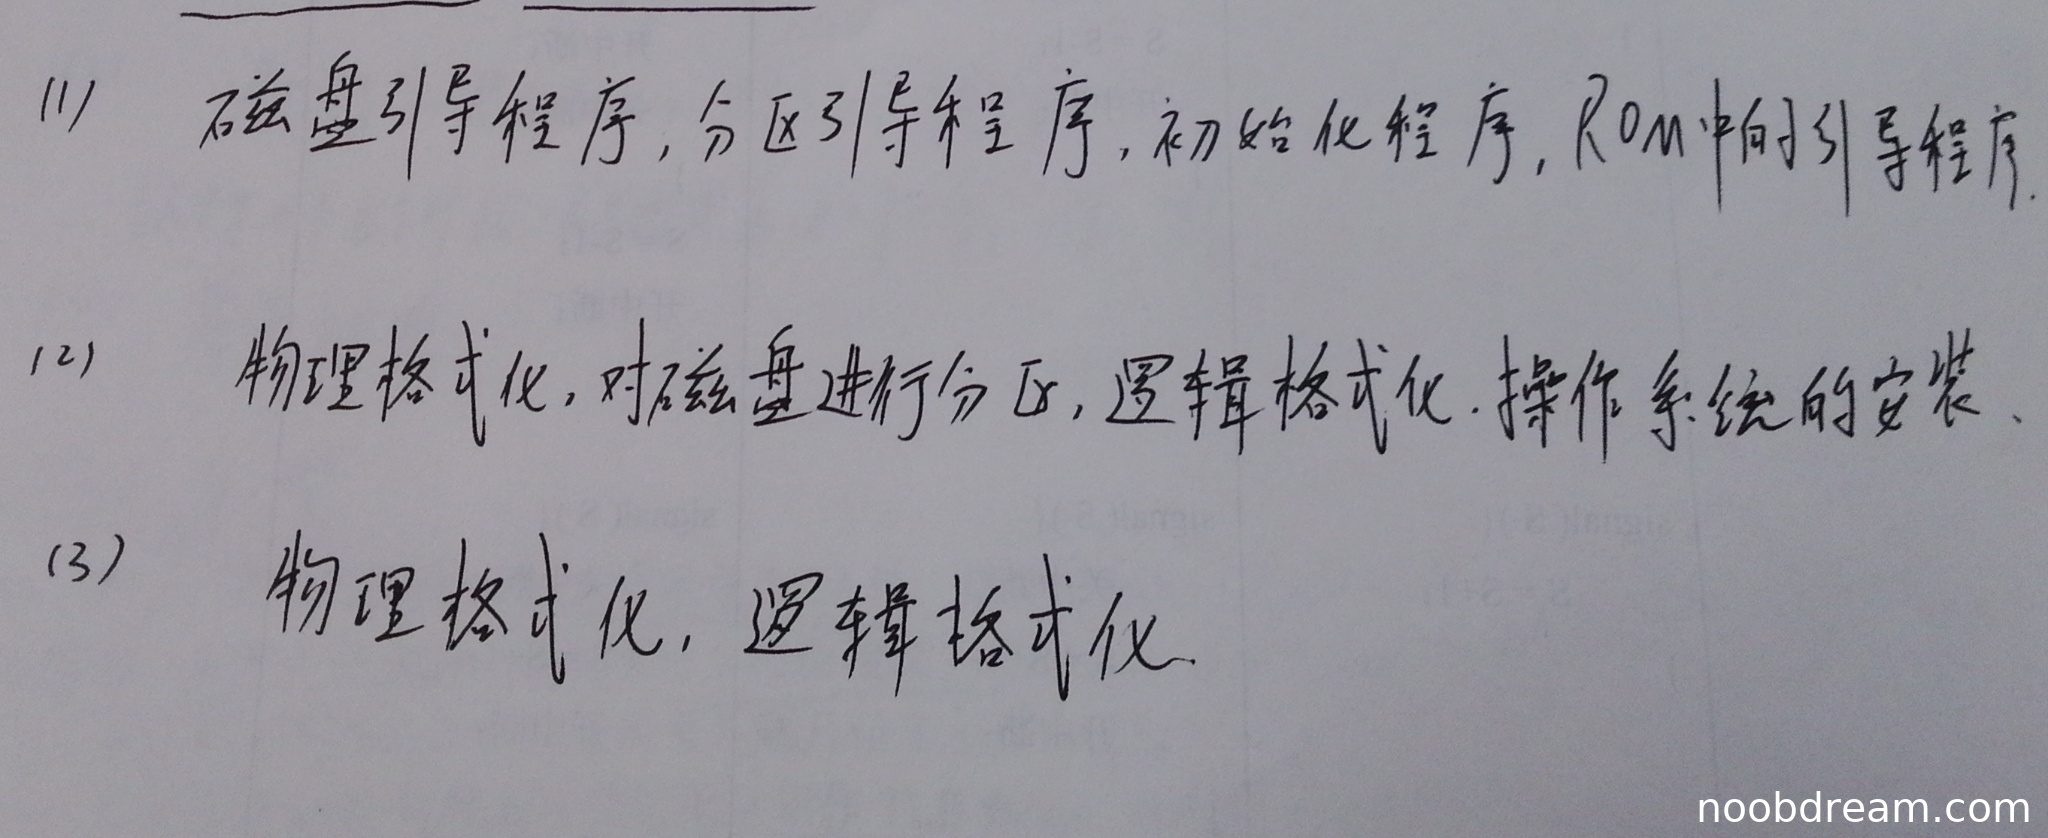 (1) 磁盘引导程序,分区引导程序,初始化程序,ROM中的引导程序.
(2) 物理格式化,对磁盘进行分区,逻辑格式化.操作系统的安装、
(3) 物理格式化,逻辑格式化.
noobdream.com